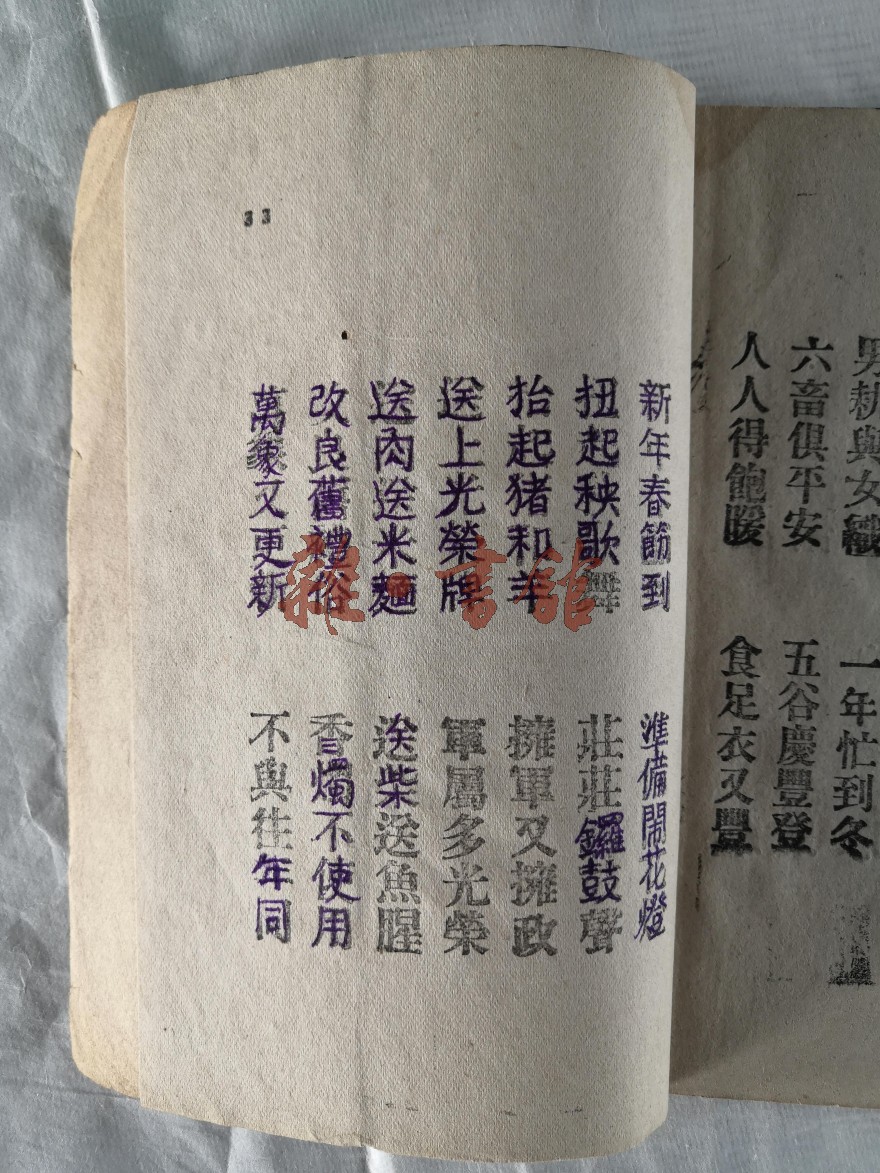 男耕與女織
一年忙到冬
六畜俱平安
五谷慶豐登
人人得飽暖
食足衣又豐
33
新年春節到
準備鬧花燈
扭起秧歌舞
莊莊鑼鼓聲
抬起猪和羊
擁軍又擁政
送上光榮牌
軍屬多光榮
送肉送米麵
送柴送魚腥
改良舊禮俗
香燭不使用
萬象又更新
不與往年同
雜·書館